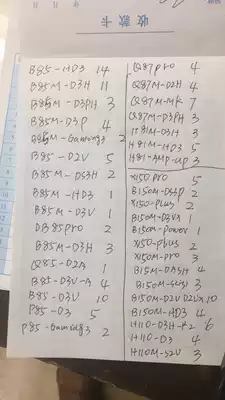 收款卡
B85-HD3 14
B85M-D3H 11
B85M-D3PH 3
B85M-D3P 4
B85M-Gaming3 2
B85-D2V 5
B85M-DS3H 2
B85M-HD3 1
B85M-D3V 1
DB85pro 2
B85M-D3H 3
Q85-D2A 1
B85-D3V-A 4
B85-D3V 10
P85-D3 5
P85-Gaming3 2
Q87pro 4
Q87M-D2H 4
Q87M-MK 7
Q87M-D3PH 3
H81M-D3H 3
H81M-HD3 5
H81-AMP-UP 3
X150pro 5
B150M-DS3P 2
X150-plus 2
B150M-D3VX 1
B150M-power 1
X150-plus 2
X150M-pro 3
B15M-DASH 4
B150M-
B150M-D2V D2VX 10
B150M-HD3 4
H110-D3H-K2 6
H110-D3 4
H110M-S2V 3